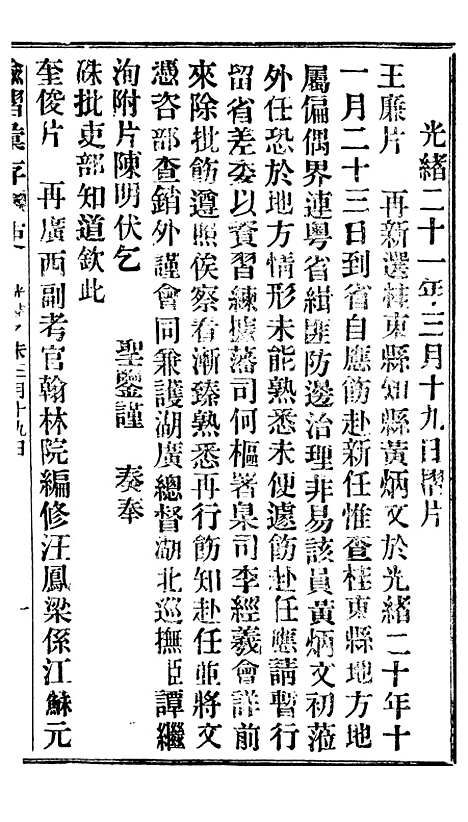 光緒二十一年三月十九日摺片
王廉片　再新選桂東縣知縣黃炳文於光緒二十年十
一月二十三日到省自應飭赴新任惟查桂東縣地方地
屬偏僻界連粵省緝匪防邊治理非易該員黃炳文初蒞
外任恐於地方情形未能熟悉未便遽飭赴任應請暫行
留省差委以資習練據藩司何樞署臬司李經羲會詳前
來除批飭遵照俟察看漸臻熟悉再行飭知赴任並將文
憑咨部查銷外謹會同兼護湖廣總督湖北巡撫臣譚繼
洵附片陳明伏乞　聖鑒謹　奏奉
硃批吏部知道欽此
奎俊片　再廣西副考官翰林院編修汪鳳梁係江蘇元
諭摺彙存
三月十九日
一